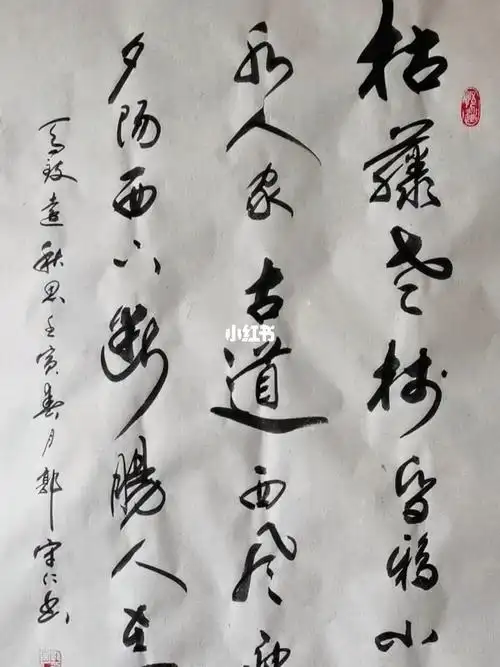 枯藤老树昏鸦小
水人家古道西风
夕阳西下断腸人在
马致远秋思壬寅春月郭守仁书
小红书